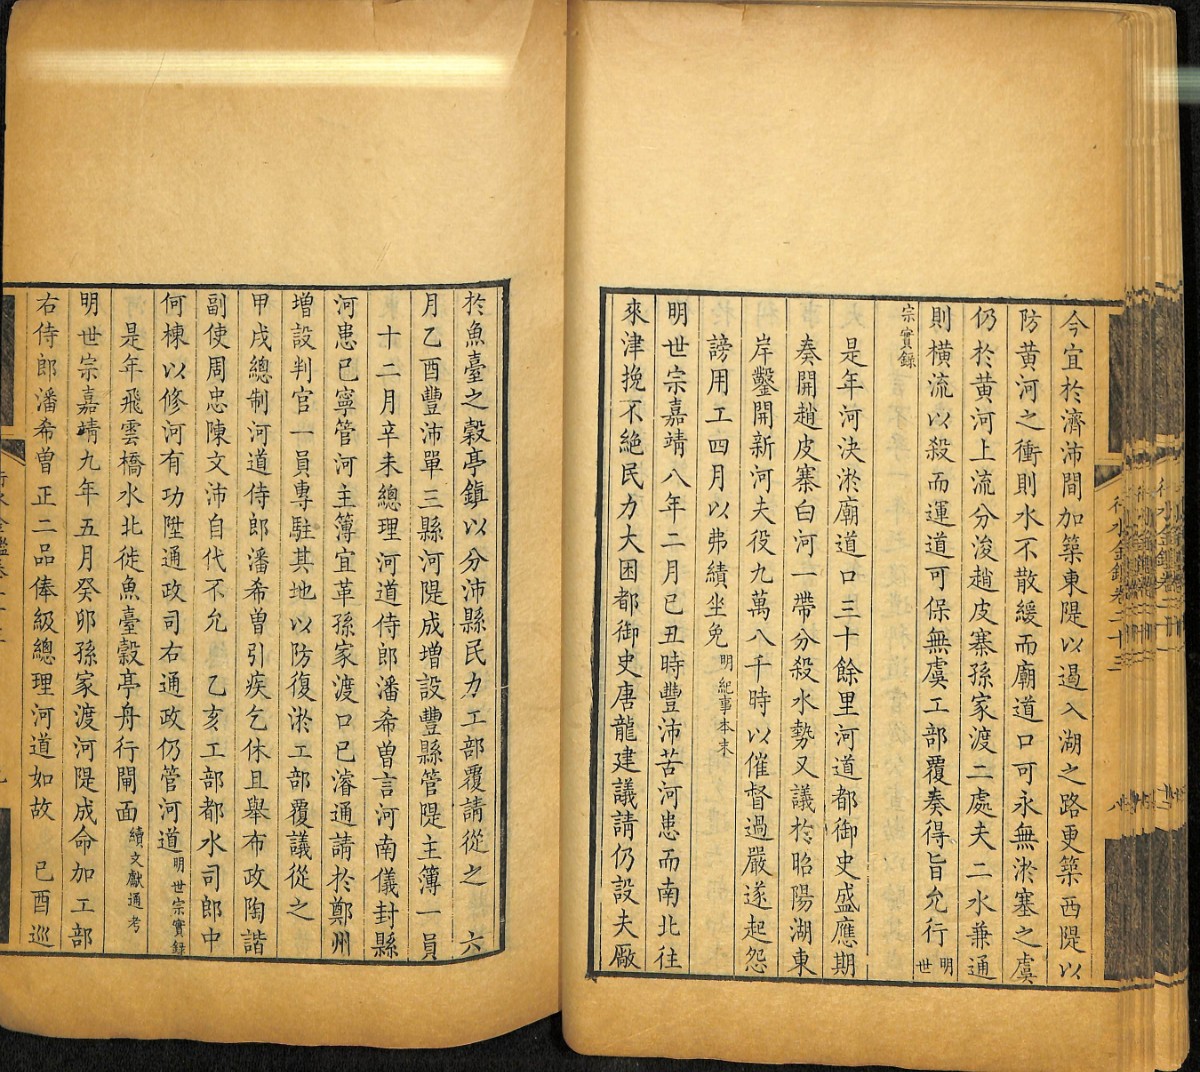 今宜於濟沛間加築東隄以遏入湖之路更築西隄以
防黃河之衝則水不散緩而廟道口可永無淤塞之虞
仍於黃河上流分浚趙皮寨孫家渡二處夫二水兼通
則橫流以殺而運道可保無虞工部覆奏得旨允行明世
宗實錄
是年河決淤廟道口三十餘里河道都御史盛應期
奏開趙皮寨白河一帶分殺水勢又議於昭陽湖東
岸鑿開新河夫役九萬八千時以催督過嚴遂起怨
謗用工四月以弗績坐免明紀事本末
明世宗嘉靖八年二月己丑時豐沛苦河患而南北往
來津挽不絕民力大困都御史唐龍建議請仍設夫廠
於魚臺之穀亭鎮以分沛縣民力工部覆請從之 六
月乙酉豐沛單三縣河隄成增設豐縣管隄主簿一員
十二月辛未總理河道侍郎潘希曾言河南儀封縣
河患已寧管河主簿宜革孫家渡口已濬通請於鄭州
增設判官一員專駐其地以防復淤工部覆議從之
甲戌總制河道侍郎潘希曾引疾乞休且舉布政陶諧
副使周忠陳文沛自代不允 乙亥工部都水司郎中
何棟以修河有功陞通政司右通政仍管河道明世宗實錄
是年飛雲橋水北徙魚臺穀亭舟行閘面續文獻通考
明世宗嘉靖九年五月癸卯孫家渡河隄成命加工部
右侍郎潘希曾正二品俸級總理河道如故 己酉巡
行水金鑑卷二十三